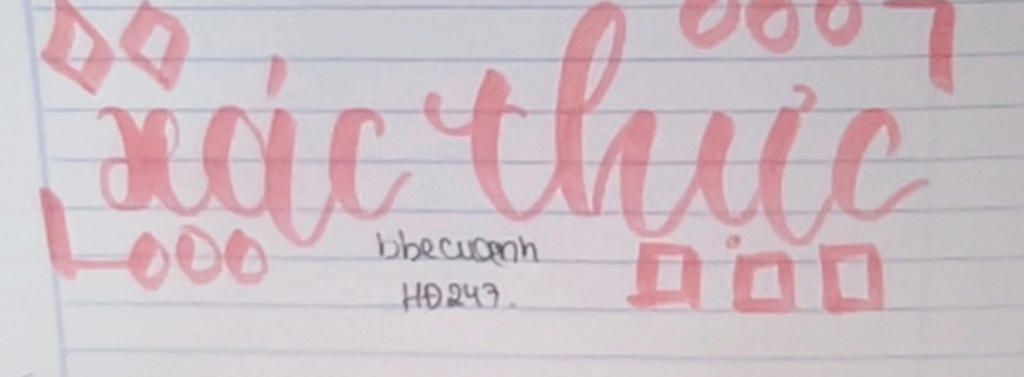 xác thực
bbecuanh
HĐ247.